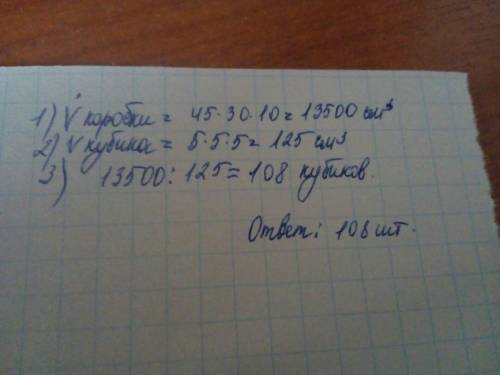 1) V коробки = 45·30·10 = 13500 см³
2) V кубика = 5·5·5 = 125 см³
3) 13500 : 125 = 108 кубиков.
Ответ: 108 шт.